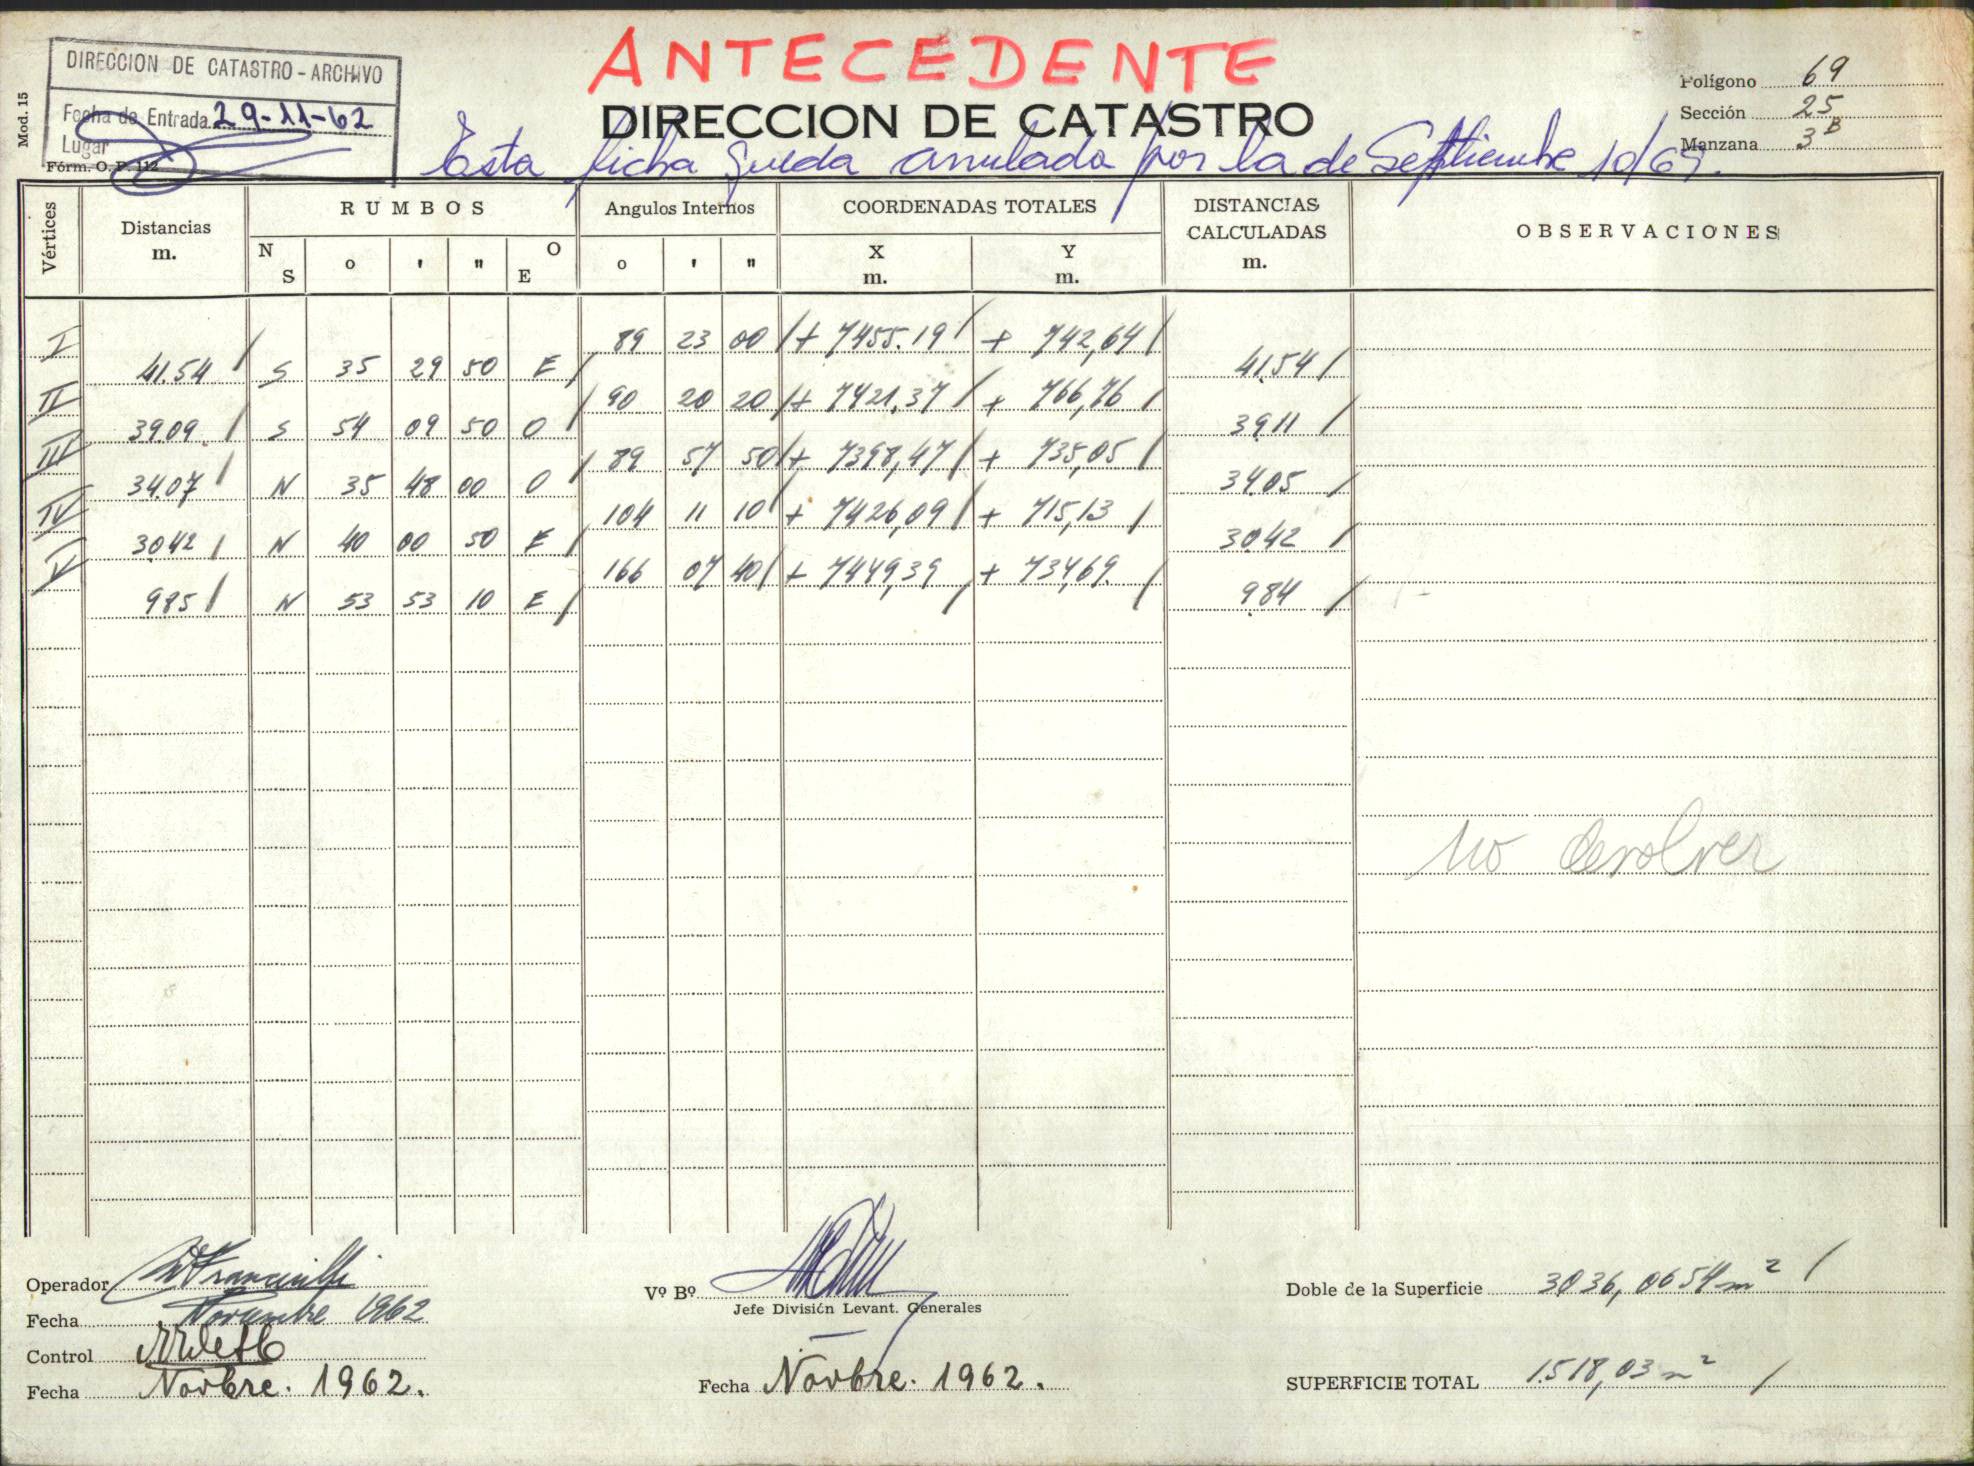 ANTECEDENTE
DIRECCION DE CATASTRO - ARCHIVO
Fecha de Entrada 29-11-62
Lugar
Fórm. O. P. 112
Mod. 15
DIRECCION DE CATASTRO
Polígono 69
Sección 25
Manzana 3 B
Esta ficha queda anulada por la de Septiembre 10/69.
Vértices
Distancias m.
RUMBOS
Angulos Internos
COORDENADAS TOTALES
DISTANCIAS CALCULADAS m.
OBSERVACIONES
N S o ' " O E o ' " X m. Y m.
I 89 23 00 + 7455.19 + 742,64
41.54 S 35 29 50 E 41.54
II 90 20 20 + 7421,37 + 766,76
39.09 S 54 09 50 O 39.11
III 89 57 50 + 7398,47 + 735,05
34.07 N 35 48 00 O 34.05
IV 104 11 10 + 7426,09 + 715,13
30.42 N 40 00 50 E 30.42
V 166 07 40 + 7449,39 + 734,69
9.85 N 53 53 10 E 9.84
no devolver
Operador
Fecha Noviembre 1962
Control
Fecha Novbre. 1962.
Vº Bº
Jefe División Levant. Generales
Fecha Novbre. 1962.
Doble de la Superficie 3036,0654 m²
SUPERFICIE TOTAL 1.518,03 m²